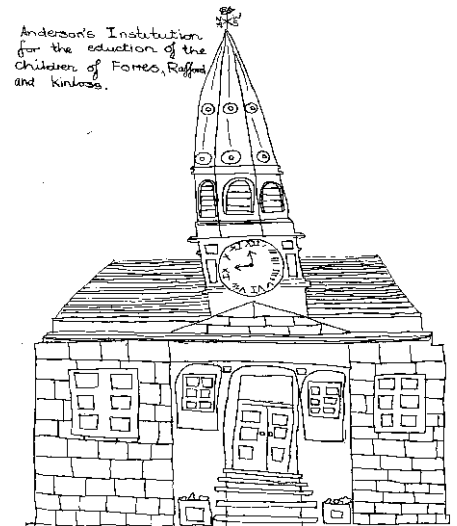 Anderson's Institution
for the eduction of the
Children of Forres, Rafford
and Kinloss.
XII